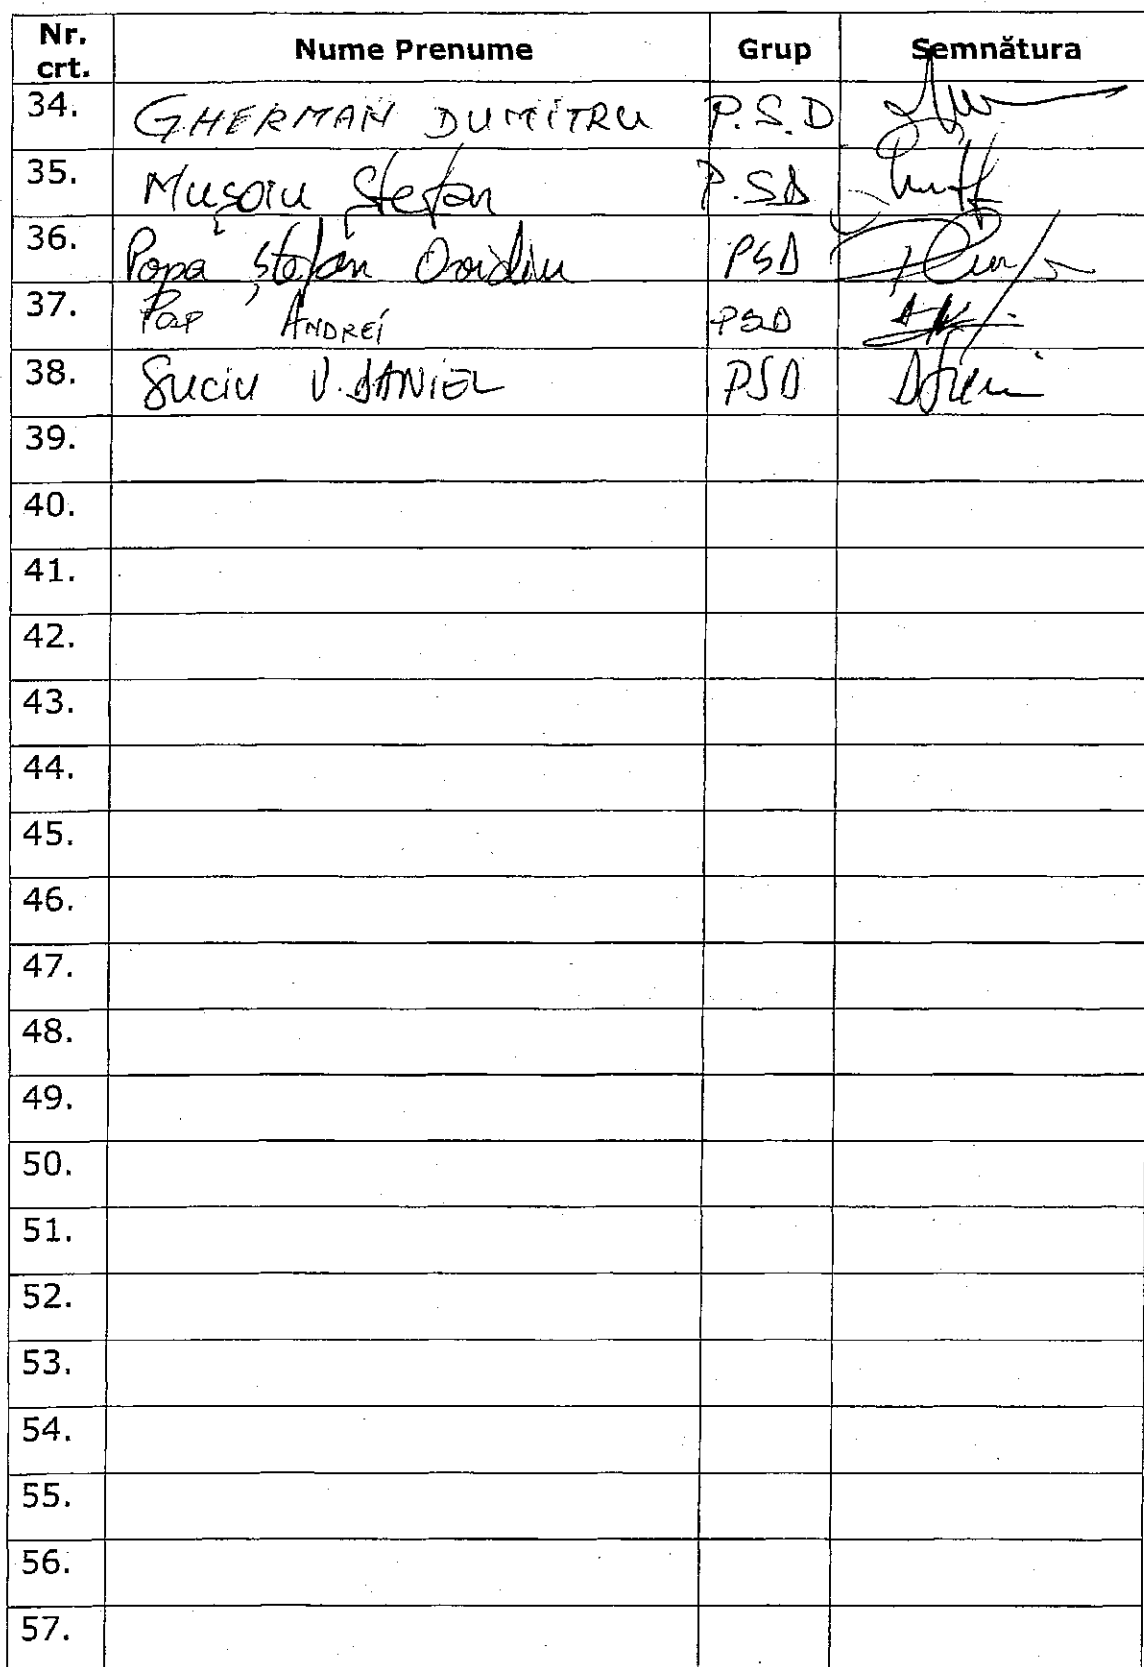 Nr. crt. Nume Prenume Grup Semnătura
34. GHERMAN DUMITRU P.S.D
35. Mușoiu Ștefan P.SD
36. Popa Ștefan Ovidiu PSD
37. Pop ANDREI PSD
38. Suciu V. DANIEL PSD
39.
40.
41.
42.
43.
44.
45.
46.
47.
48.
49.
50.
51.
52.
53.
54.
55.
56.
57.